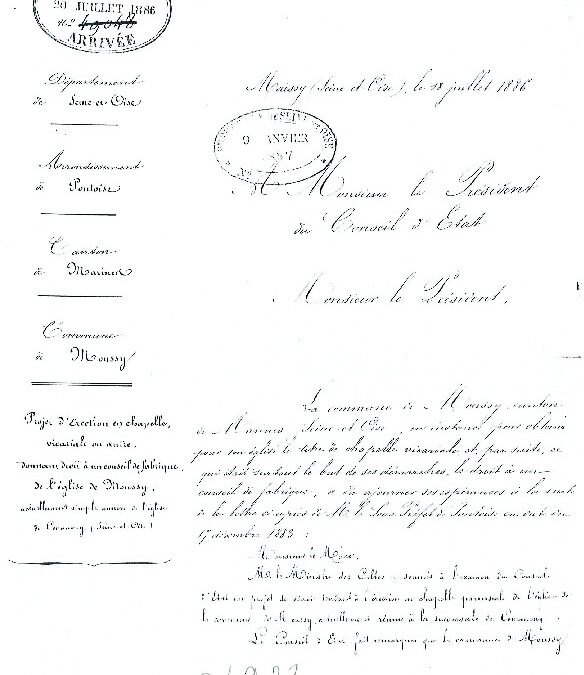 20 JUILLET 1886
ARRIVÉE
Département
de Seine-et-Oise
Arrondissement
de Pontoise
Canton
de Marines
Commune
de Moussy
Projet d'Erection en chapelle,
vicariale ou autre,
donnant droit à un conseil de fabrique
de l'église de Moussy,
actuellement simple annexe de l'église
de Commeny (Seine et Oise)
Moussy (Seine et Oise), le 18 juillet 1886
9 JANVIER
1887
A Monsieur le Président
du Conseil d'Etat
Monsieur le Président,
La commune de Moussy, canton
de Marines, Seine et Oise, en instance pour obtenir
pour son église le titre de chapelle vicariale et, par suite, ce
qui était surtout le but de ses démarches, le droit à un
conseil de fabrique, a dû ajourner ses espérances à la suite
de la lettre ci-après de M. le Sous-Préfet de Pontoise en date du
17 décembre 1883 :
Monsieur le Maire,
M. le Ministre des Cultes a soumis à l'examen du Conseil
d'Etat un projet de décret tendant à l'érection en chapelle paroissiale de l'église de
la commune de Moussy actuellement réunie à la succursale de Commeny.
Le Conseil d'Etat fait remarquer que la commune de Moussy